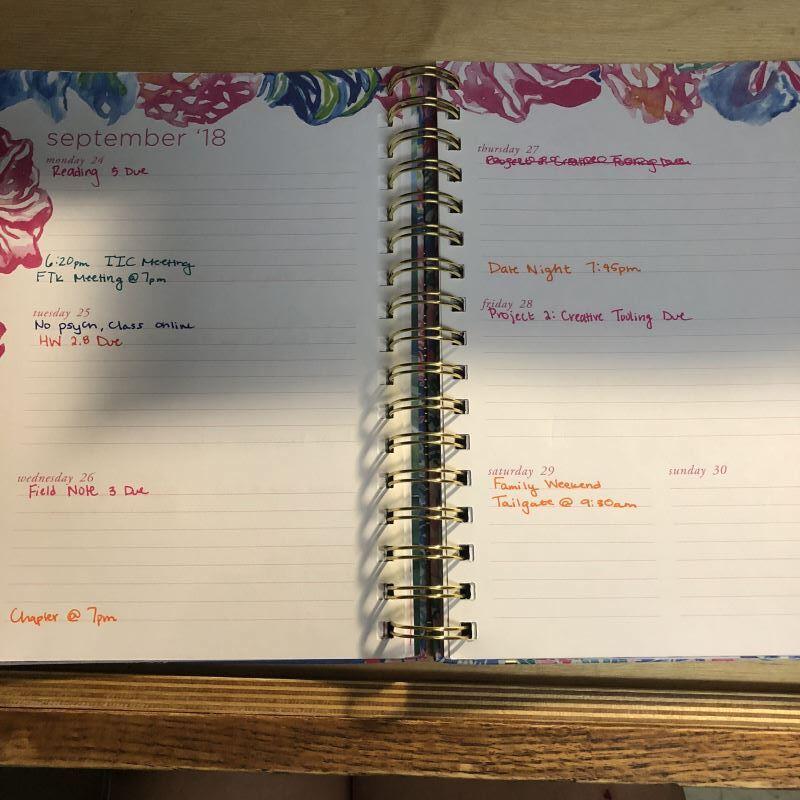 september '18
monday 24
Reading 5 Due
6:20pm IIC Meeting
FTK Meeting @ 7pm
tuesday 25
No psych, Class online
HW 2.8 Due
wednesday 26
Field Note 3 Due
Chapter @ 7pm
thursday 27
Creative Tooling Due
Date Night 7:45pm
friday 28
Project 2: Creative Tooling Due
saturday 29
Family Weekend
Tailgate @ 9:30am
sunday 30